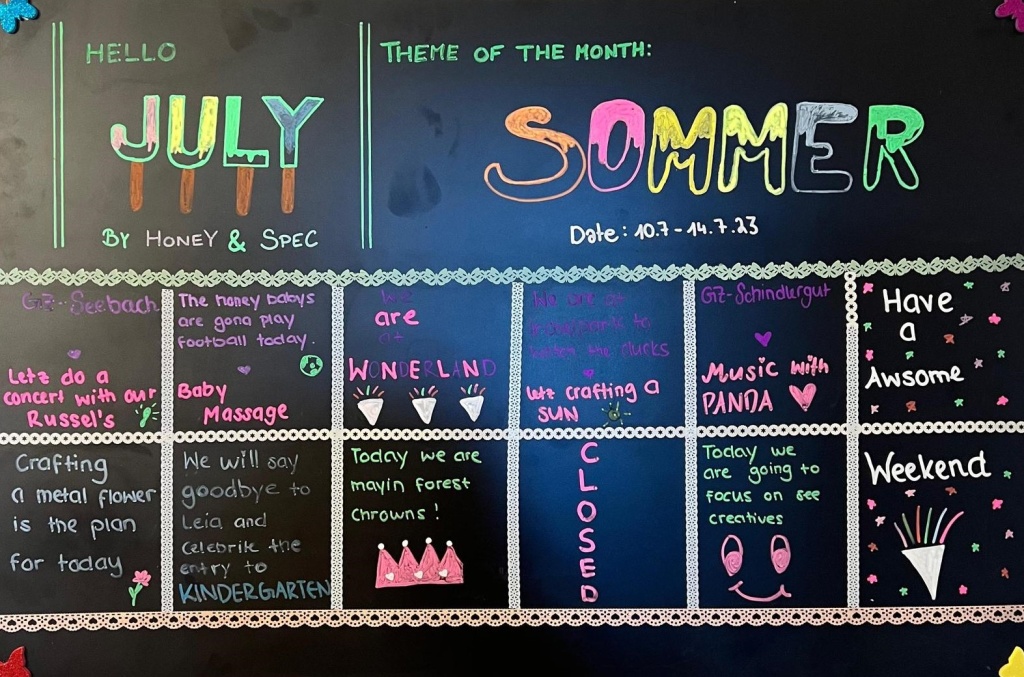 HELLO
JULY
BY HONEY & SPEC
THEME OF THE MONTH:
SOMMER
Date: 10.7 - 14.7.23
GZ-Seebach
Letz do a
concert with our
Russel's
The honey babys
are gona play
football today.
Baby
Massage
We
are
at
WONDERLAND
We are at
to
the ducks
letz crafting a
SUN
GZ-Schindlergut
Music with
PANDA
Have
a
Awsome
Crafting
a metal flower
is the plan
for today
We will say
goodbye to
Leia and
Celebrite the
entry to
KINDERGARTEN
Today we are
mayin forest
chrowns!
CLOSED
Today we
are going to
focus on see
creatives
Weekend